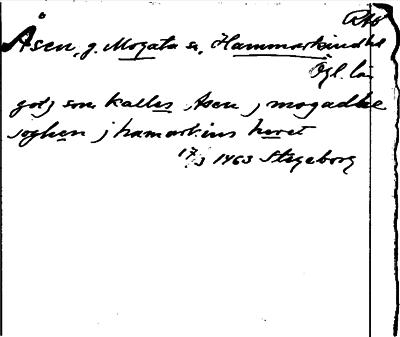 RAB
Åsen, g. Mogata sn, Hammarkinds hd
Ögl. län
godz som kalles Asen j mogadhe
soghen j hamarkins heret
17/3 1463 Stegeborg